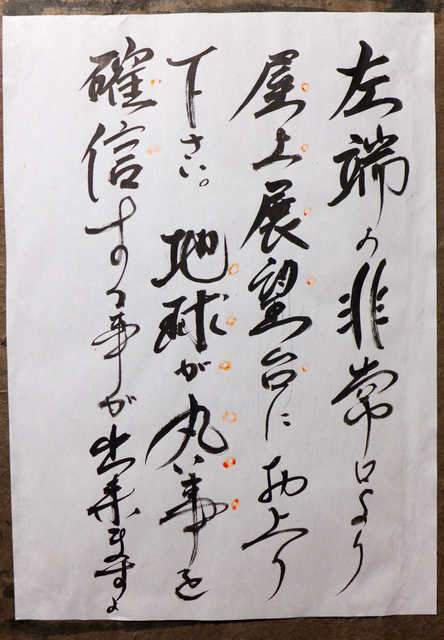 左端の非常口より
屋上展望台にお上り
下さい。地球が丸い事を
確信する事が出来ますよ